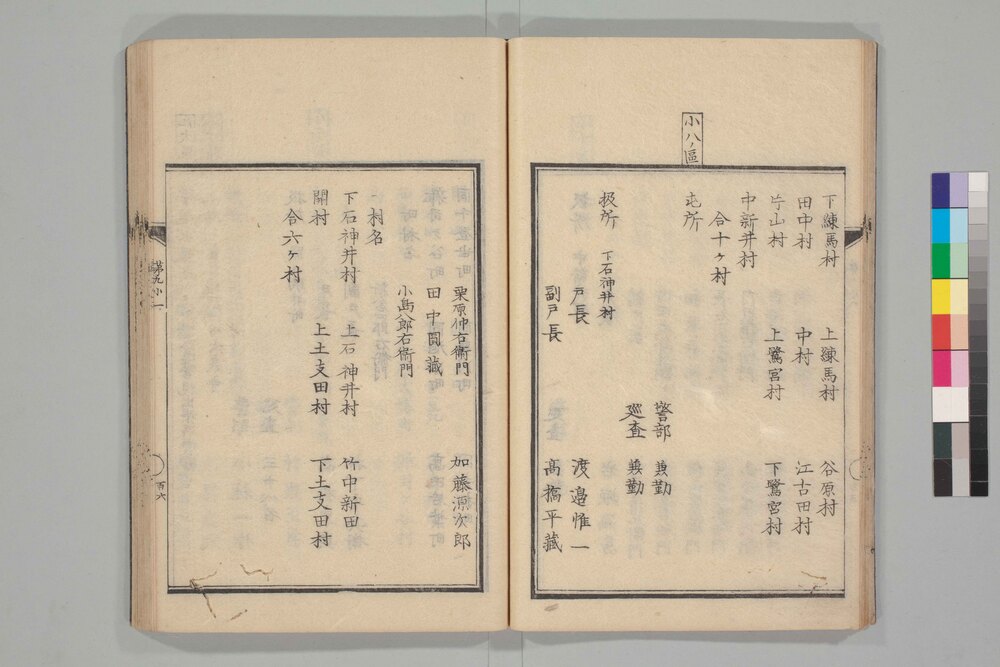 下練馬村 上練馬村 谷原村
田中村 中村 江古田村
片山村 上鷺宮村 下鷺宮村
中新井村
合十ヶ村
屯所 警部 兼勤
巡査 兼勤
小八ノ區
扱所 下石神井村
戸長 渡邉惟一
副戸長 高橋平藏
栗原仲右衞門 加藤源次郎
田中圓藏
小島八郎右衞門
村名
下石神井村 上石神井村 竹中新田
關村 上土支田村 下土支田村
合六ヶ村
第九小一
百六